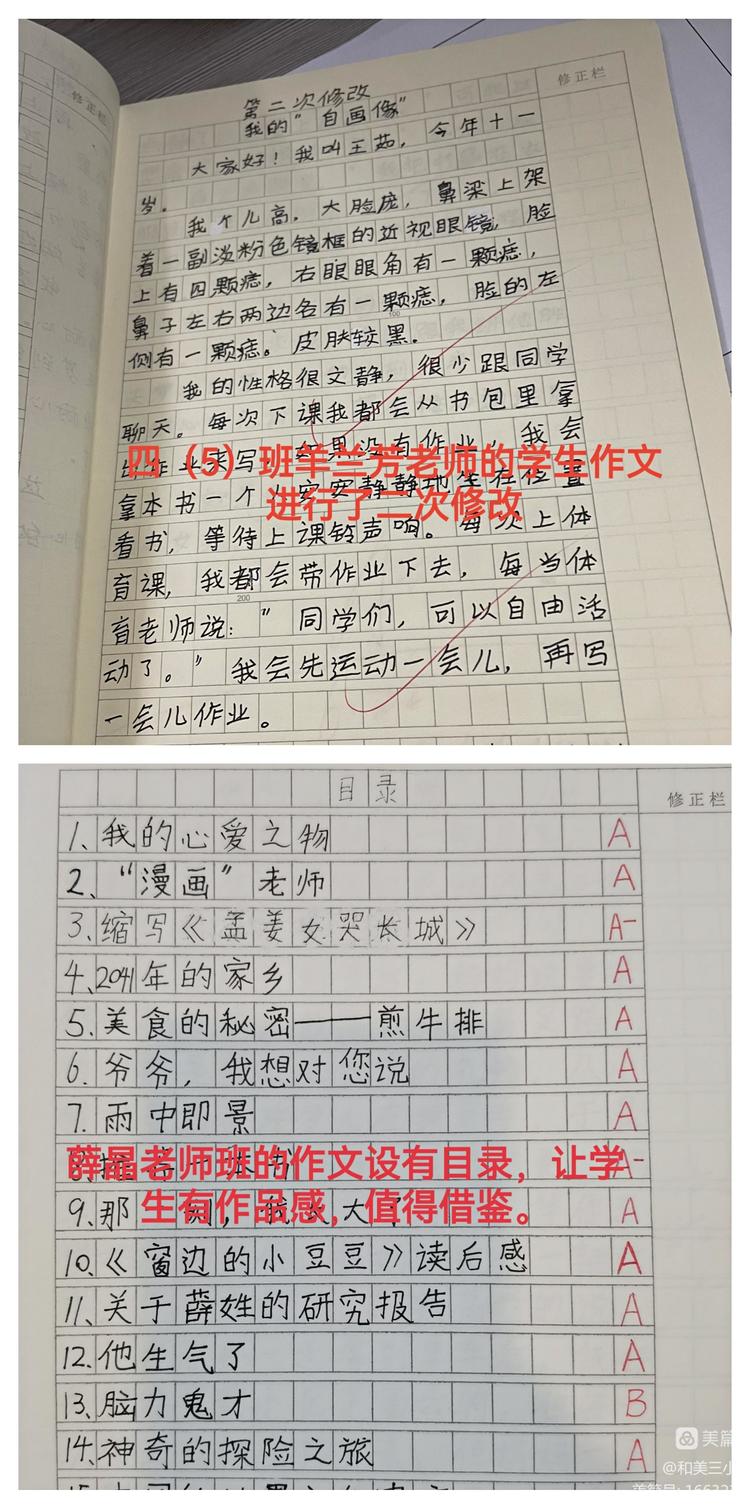 修正栏
修正栏
第二次修改
我的"自画像"
大家好！我叫王茹，今年十一
岁。
我个儿高，大脸庞，鼻梁上架
着一副淡粉色镜框的近视眼镜，脸
上有四颗痣，右眼眼角有一颗痣，
鼻子左右两边各有一颗痣，脸的左
100
侧有一颗痣。皮肤较黑。
我的性格很文静，很少跟同学
聊天。每次下课我都会从书包里拿
出作业来写，如果没有作业，我会
四（5）班羊兰芳老师的学生作文
进行了二次修改
拿本书一个人安安静静地坐在位置
看书，等待上课铃声响。每次上体
育课，我都会带作业下去，每当体
200
育老师说："同学们，可以自由活
动了。"我会先运动一会儿，再写
一会儿作业。
目录
修正栏
1、我的心爱之物 A
2、"漫画"老师 A
3、缩写《孟姜女哭长城》 A-
4、2041年的家乡 A
5、美食的秘密——煎牛排 A
6、爷爷，我想对您说 A
7、雨中即景 A
8、 A-
薛晶老师班的作文设有目录，让学
生有作品感，值得借鉴。
9、那 ，我长大了 A
10、《窗边的小豆豆》读后感 A
11、关于薛姓的研究报告 A
12、他生气了 A
13、脑力鬼才 B
14、神奇的探险之旅 A
美篇
@和美三小